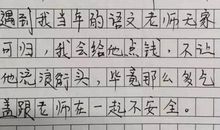 遇到我当年的语文老师无家
可归，我会给他点钱，不让
他流浪街头，毕竟那么多乞
盖跟老师在一起不安全。